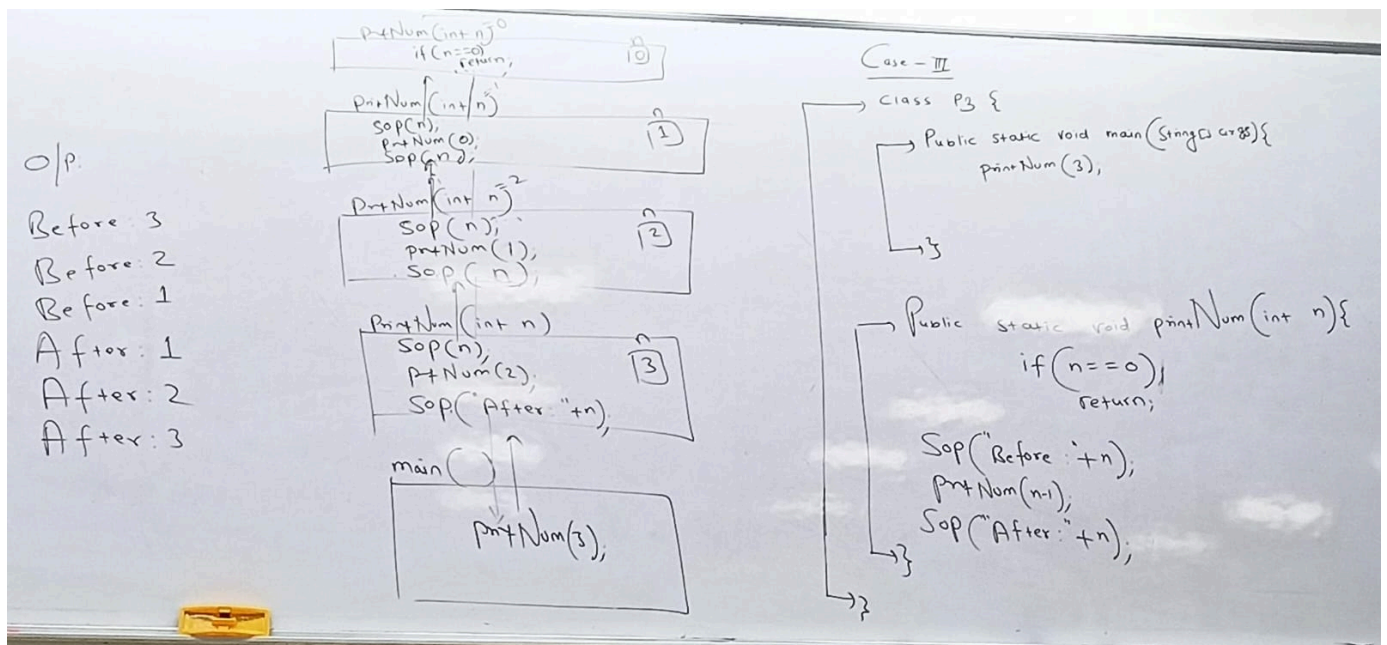 O/P.
Before: 3
Before: 2
Before: 1
After: 1
After: 2
After: 3
prtNum(int n)=0
if (n==0)
return;
n
0
printNum(int n)=1
Sop(n);
prtNum(0);
Sop(n);
n
1
PrtNum(int n)=2
Sop(n);
prtNum(1);
Sop(n);
n
2
PrintNum(int n)
Sop(n);
ptNum(2);
Sop("After:"+n);
n
3
main()
prntNum(3);
Case - III
class P3 {
Public static void main(String[] args){
printNum(3);
}
Public static void printNum(int n){
if(n==0)
return;
Sop("Before:"+n);
prntNum(n-1);
Sop("After:"+n);
}
}